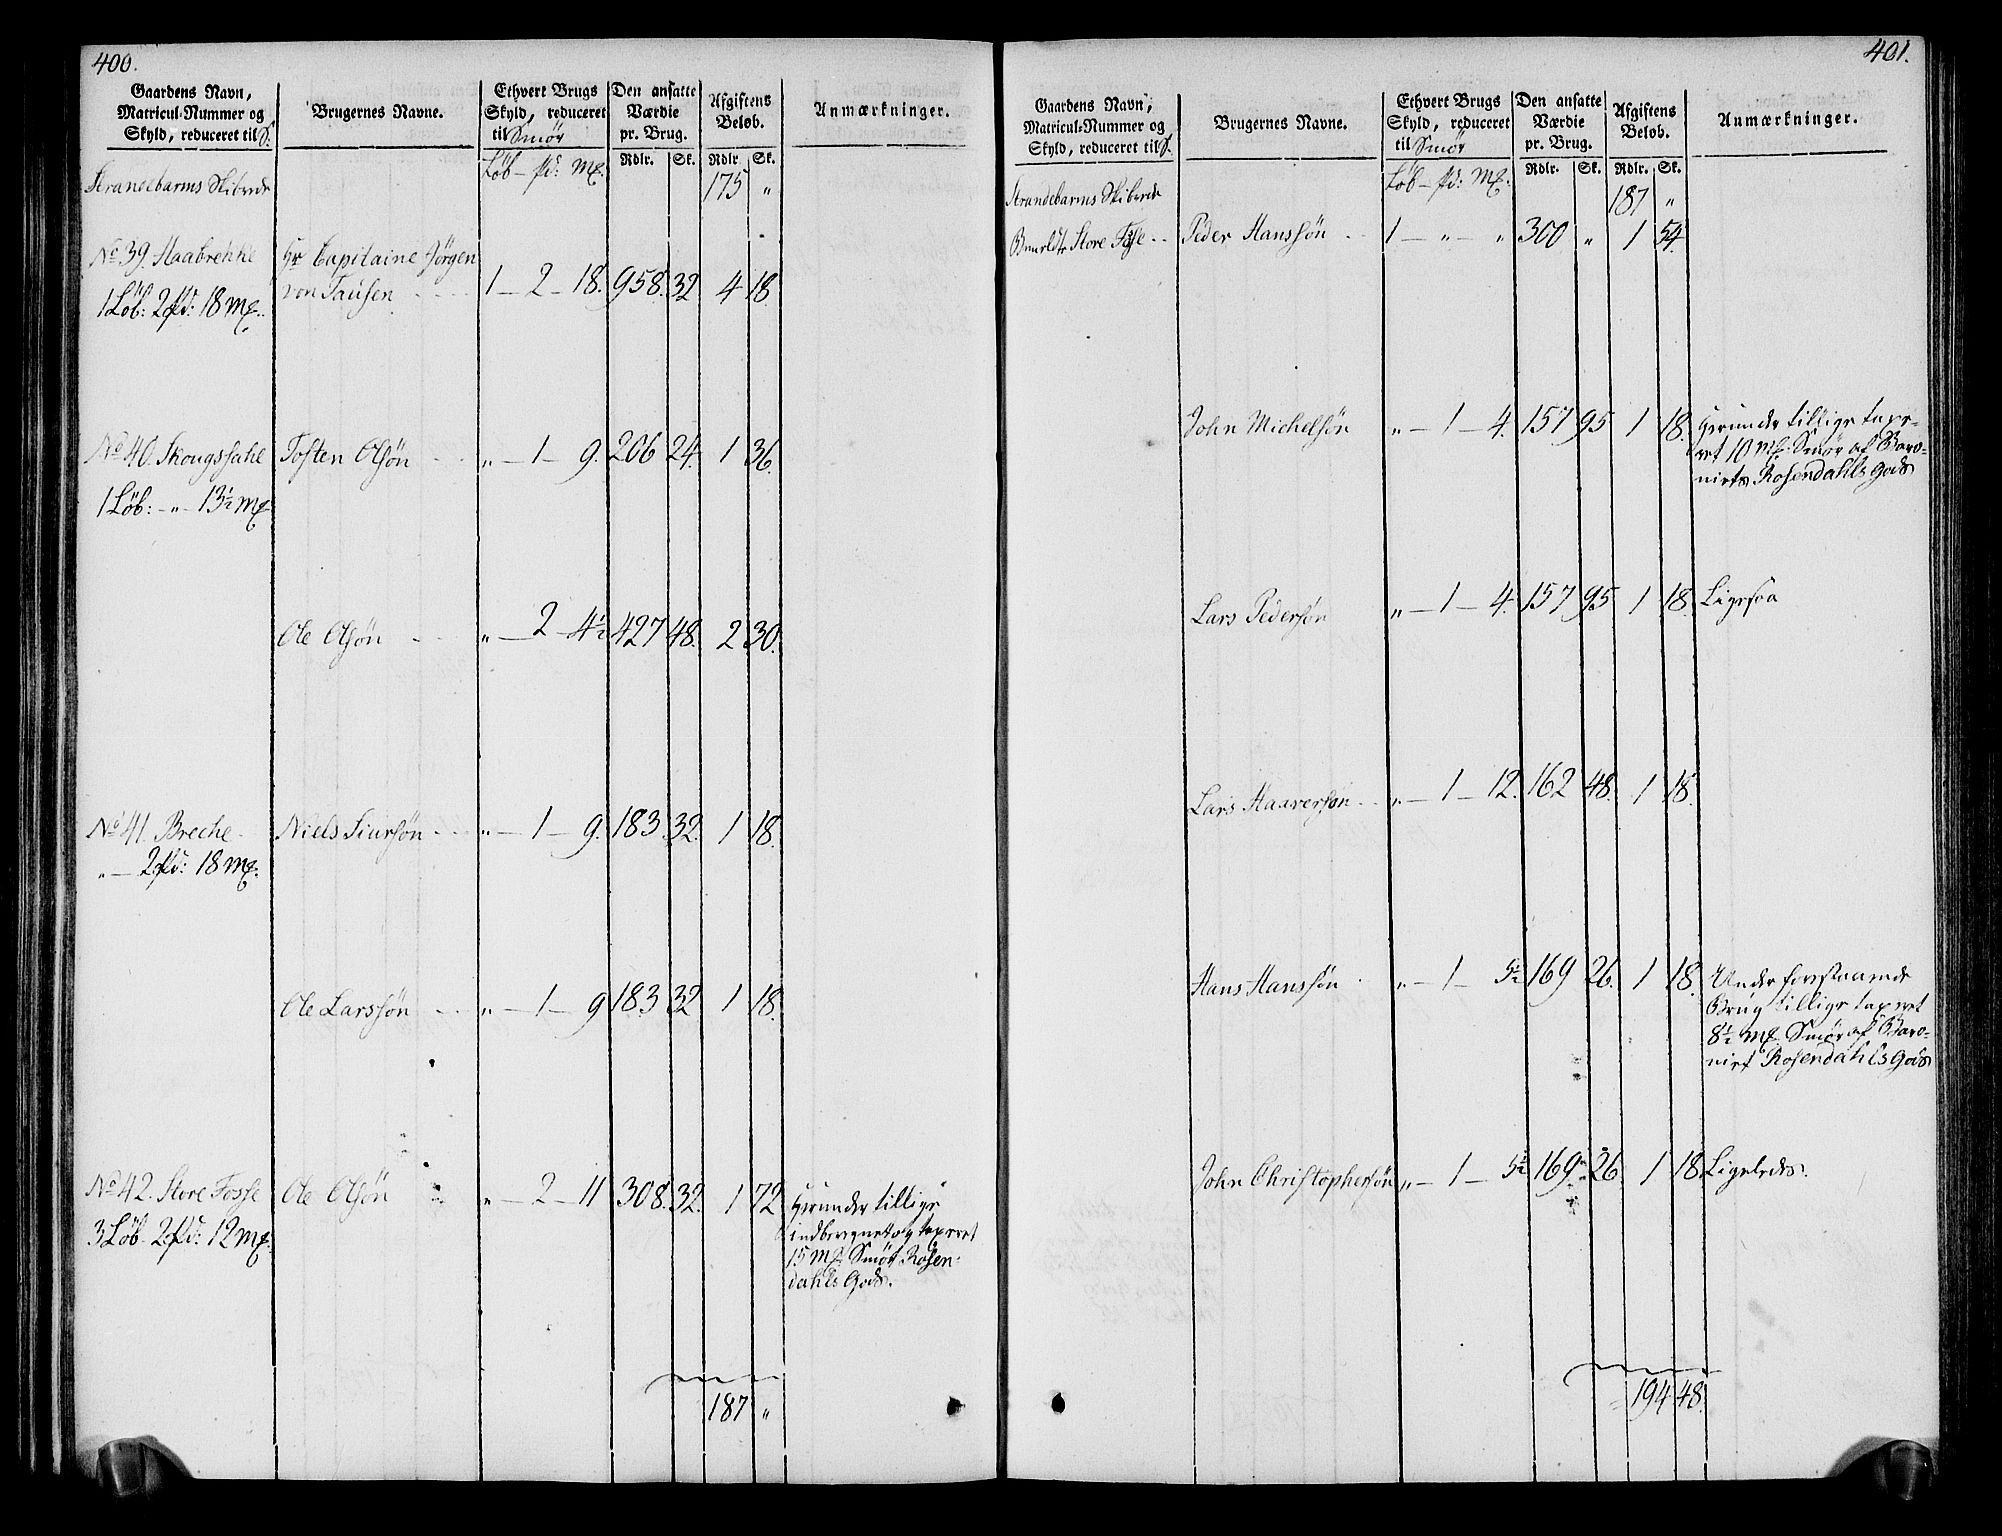 400.
Gaardens Navn,
Matricul-Nummer og
Skyld, reduceret til S.
Brugernes Navne.
Ethvert Brugs
Skyld, reduceret
til Smör
Den ansatte
Værdie
pr. Brug.
Afgiftens
Beløb.
Anmærkninger.
Löb — pd: Mk.
Rdlr. Sk. Rdlr. Sk.
Strandebarms Skibrede
175 "
No 39. Haabrekke
1 Löb: 2 pd: 18 Mk.
Hr Capitaine Jörgen
von Tausen
1 — 2 — 18. 958. 32. 4 18.
No 40. Skougssahl
1 Löb: - " - 13½ Mk
Tosten Olsön " — 1 — 9. 206 24. 1 36.
Ole Olsön " — 2 — 4½ 427 48. 2 30.
No 41. Breche
" — 2 pd: 18 Mk.
Niels Siursön " — 1 — 9. 183. 32. 1 18.
Ole Larssön " — 1 — 9 183 32 1 18.
No 42. Store Fosse
3 Löb. 2 pd: 12 Mk.
Ole Olsön " — 2 — 11 308. 32. 1 72
Herunder tillige
indberegnet og taxeret
15 Mk Smör Rosen-
dahls Gods.
187 "
401.
Gaardens Navn,
Matricul-Nummer og
Skyld, reduceret til S.
Brugernes Navne.
Ethvert Brugs
Skyld, reduceret
til Smör
Den ansatte
Værdie
pr. Brug.
Afgiftens
Beløb.
Anmærkninger.
Löb — pd: Mk.
Rdlr. Sk. Rdlr. Sk.
Strandebarms Skibrede
187 "
Store Fosse
Peder Hanssön 1 — " — " 300 " 1 54.
John Michelsön " — 1 — 4. 157 95 1 18.
Herunder tillige taxe-
ret 10 Mk. Smör af Baro-
niets Rosendahls Gods
Lars Pedersön " — 1 — 4. 157 95 1 18. Ligesaa
Lars Haaversön " — 1 — 12. 162 48. 1 18.
Hans Hanssön " — 1 — 5½ 169 26. 1 18.
Under forestaaende
Brug tillige taxeret
8½ Mk Smör af Baro-
niet Rosendahls Gods
John Christophersön " — 1 — 5½ 169. 26. 1 18. Ligeledes.
194 48.